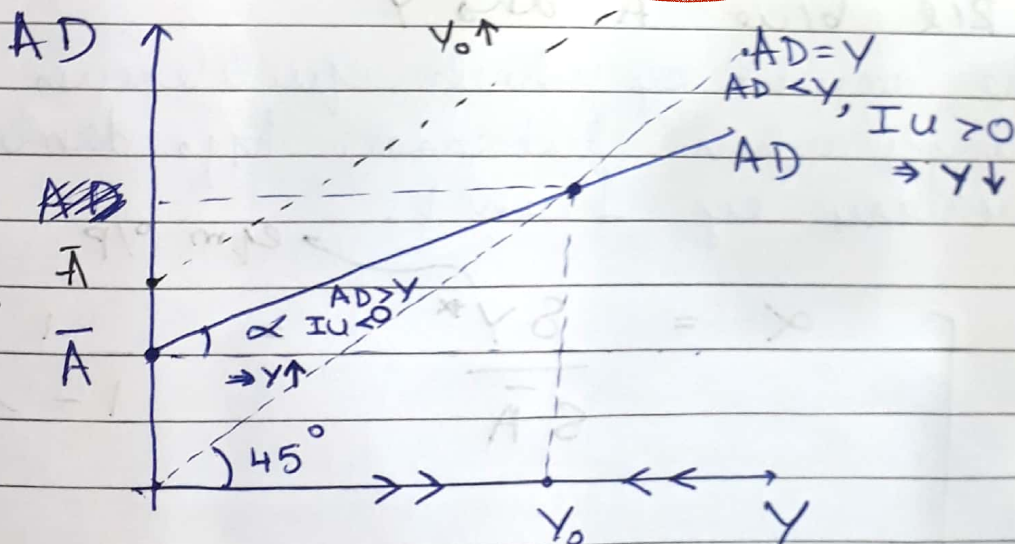 AD
Y₀↑
AD=Y
AD<Y, Iu>0
⇒ Y↓
AD
Ā
AD>Y
α Iu<0
Ā
⇒Y↑
45°
Y₀
Y